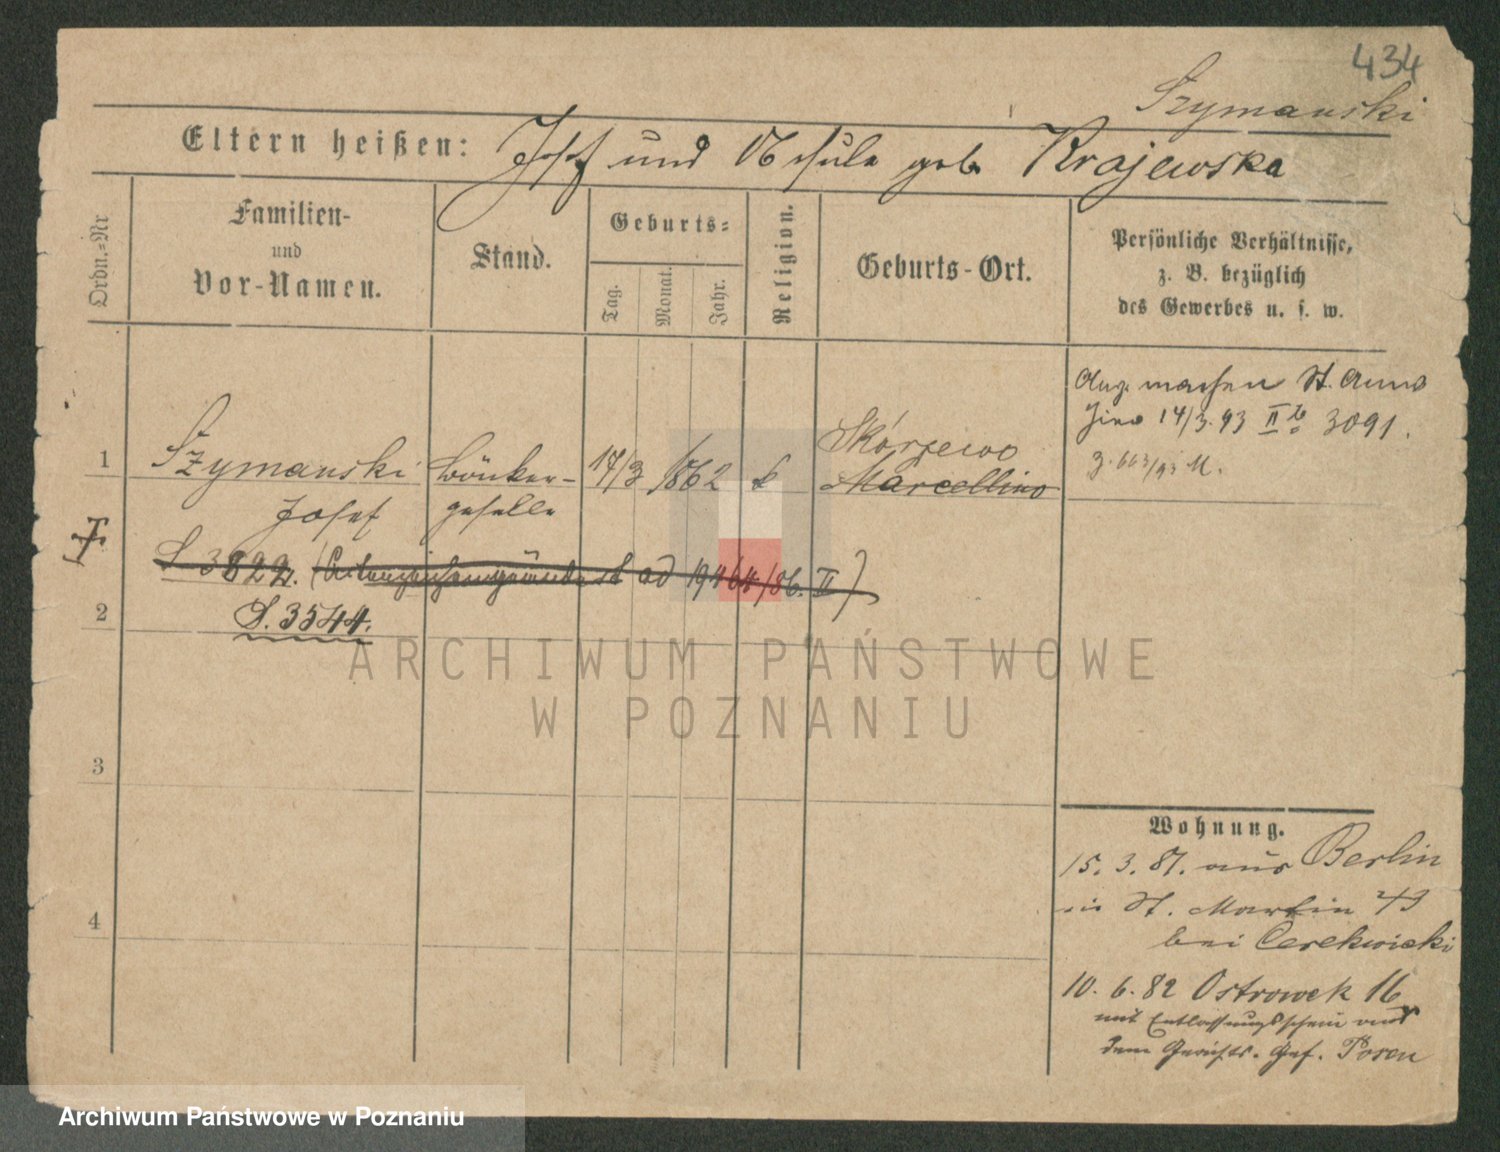 434
Szymanski
Eltern heißen: Josef und Ursula geb. Krajewska
Ordn.=Nr
Familien-
und
Vor-Namen.
Stand.
Geburts=
Tag.
Monat.
Jahr.
Religion.
Geburts-Ort.
Persönliche Verhältnisse,
z. B. bezüglich
des Gewerbes u. s. w.
machen St.
14/3. 93 IIb 3091.
1
Szymanski
Josef
geselle
17/3 1862 k
Skórzewo
Marcellino
S 3822. ad 19464/86. II)
2
S. 3544.
3
4
Wohnung.
15. 3. 87. aus Berlin
in St. Martin 43
bei Cerekwicki
10. 6. 82 Ostrowek 16
mit Entlassungsschein aus
dem Gerichts. Gef. Posen
ARCHIWUM PAŃSTWOWE
W POZNANIU
Archiwum Państwowe w Poznaniu